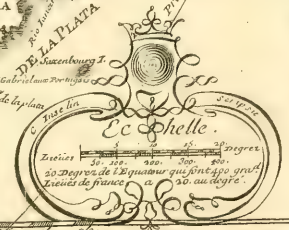 A
DE LA PLATA
Rio
Luxenbourg I.
Gabriel aux Portugais
de la plata
C Inselin
scripsit
Echelle.
5 10 15 20
Lieües Degrez
50. 100. 200. 300. 400.
20 Degrez de l'Equateur qui font 400 grad.
Lieües de france a 20. au degré.